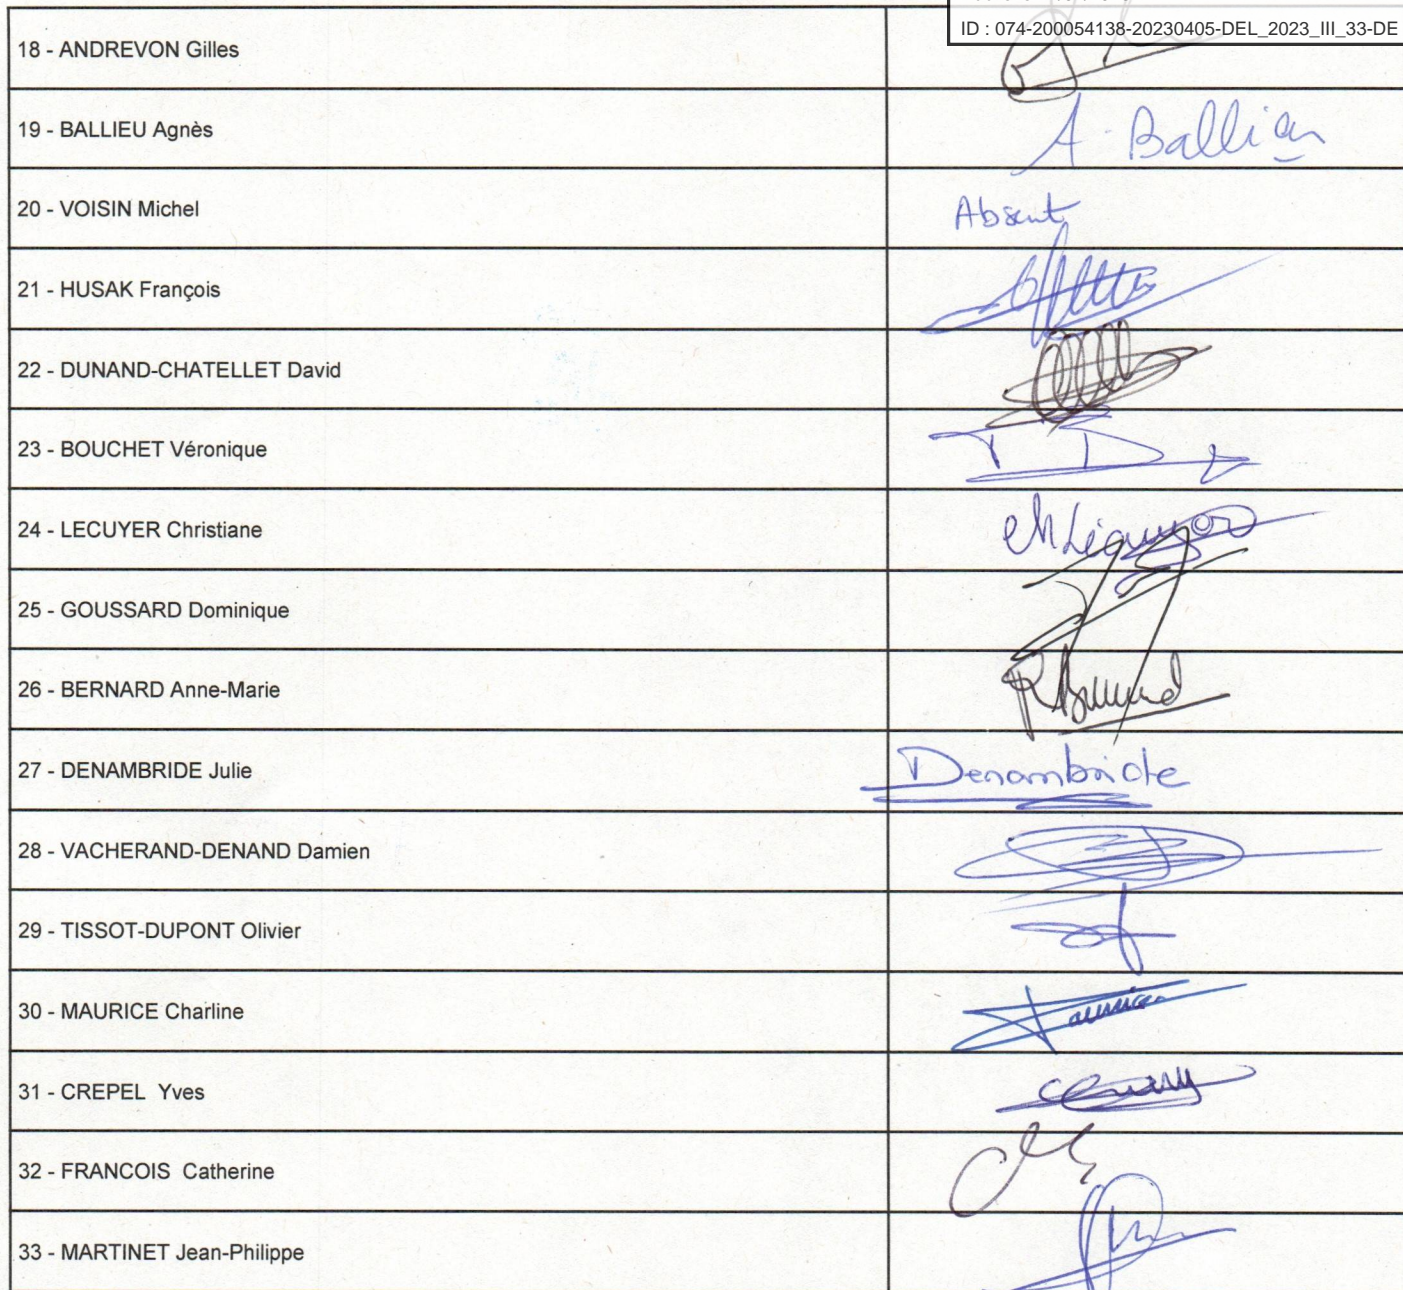 ID : 074-200054138-20230405-DEL_2023_III_33-DE
18 - ANDREVON Gilles
19 - BALLIEU Agnès
A. Ballieu
20 - VOISIN Michel
Absent
21 - HUSAK François
22 - DUNAND-CHATELLET David
23 - BOUCHET Véronique
24 - LECUYER Christiane
25 - GOUSSARD Dominique
26 - BERNARD Anne-Marie
27 - DENAMBRIDE Julie
Denambride
28 - VACHERAND-DENAND Damien
29 - TISSOT-DUPONT Olivier
30 - MAURICE Charline
31 - CREPEL Yves
32 - FRANCOIS Catherine
33 - MARTINET Jean-Philippe